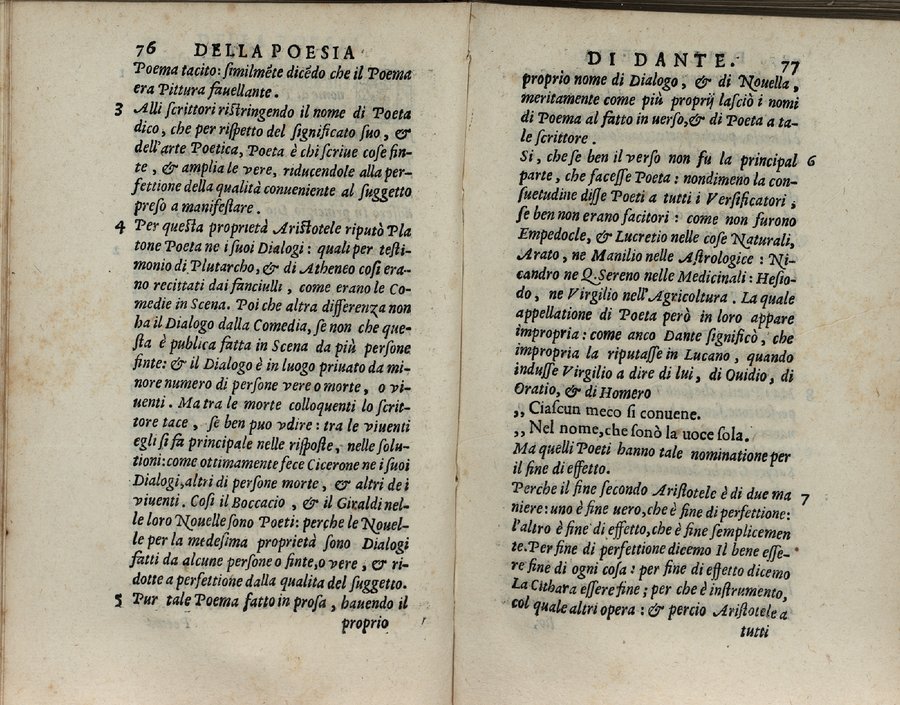 76 DELLA POESIA
Poema tacito: ſimilmẽte dicẽdo che il Poema
era Pittura fauellante.
3 Alli ſcrittori riſtringendo il nome di Poeta
dico, che per riſpetto del ſignificato ſuo, &
dell'arte Poetica, Poeta è chi ſcriue coſe fin-
te, & amplia le vere, riducendole alla per-
fettione della qualità conueniente al ſuggetto
preſo a manifeſtare.
4 Per queſta proprietà Ariſtotele riputò Pla
tone Poeta ne i ſuoi Dialogi: quali per teſti-
monio di Plutarcho, & di Atheneo coſi era-
no recittati dai fanciulli, come erano le Co-
medie in Scena. Poi che altra differenza non
ha il Dialogo dalla Comedia, ſe non che que-
ſta è publica fatta in Scena da più perſone
finte: & il Dialogo è in luogo priuato da mi-
nore numero di perſone vere o morte, o vi-
uenti. Ma tra le morte colloquenti lo ſcrit-
tore tace, ſe ben puo vdire: tra le viuenti
egli ſi fa principale nelle riſpoſte, nelle ſolu-
tioni: come ottimamente fece Cicerone ne i ſuoi
Dialogi, altri di perſone morte, & altri de i
viuenti. Coſi il Boccacio, & il Giraldi nel-
le loro Nouelle ſono Poeti: perche le Nouel-
le per la medeſima proprietà ſono Dialogi
fatti da alcune perſone o finte, o vere, & ri-
dotte a perfettione dalla qualita del ſuggetto.
5 Pur tale Poema fatto in proſa, hauendo il
proprio
DI DANTE. 77
proprio nome di Dialogo, & di Nouella,
meritamente come più proprij laſciò i nomi
di Poema al fatto in uerſo, & di Poeta a ta-
le ſcrittore.
Si, che ſe ben il verſo non fu la principal 6
parte, che faceſſe Poeta: nondimeno la con-
ſuetudine diſſe Poeti a tutti i Verſificatori,
ſe ben non erano facitori: come non furono
Empedocle, & Lucretio nelle coſe Naturali,
Arato, ne Manilio nelle Aſtrologice: Ni-
candro ne Q. Sereno nelle Medicinali: Heſio-
do, ne Virgilio nell'Agricoltura. La quale
appellatione di Poeta però in loro appare
impropria: come anco Dante ſignificò, che
impropria la riputaſſe in Lucano, quando
induſſe Virgilio a dire di lui, di Ouidio, di
Oratio, & di Homero
,, Ciaſcun meco ſi conuene.
,, Nel nome, che ſonò la uoce ſola.
Ma quelli Poeti hanno tale nominatione per
il fine di effetto.
Perche il fine ſecondo Ariſtotele è di due ma 7
niere: uno è fine uero, che è fine di perfettione:
l'altro è fine di effetto, che è fine ſemplicemen
te. Per fine di perfettione dicemo Il bene eſſe-
re fine di ogni coſa: per fine di effetto dicemo
La Cithara eſſere fine; per che è inſtrumento,
col quale altri opera: & percio Ariſtotele a
tutti